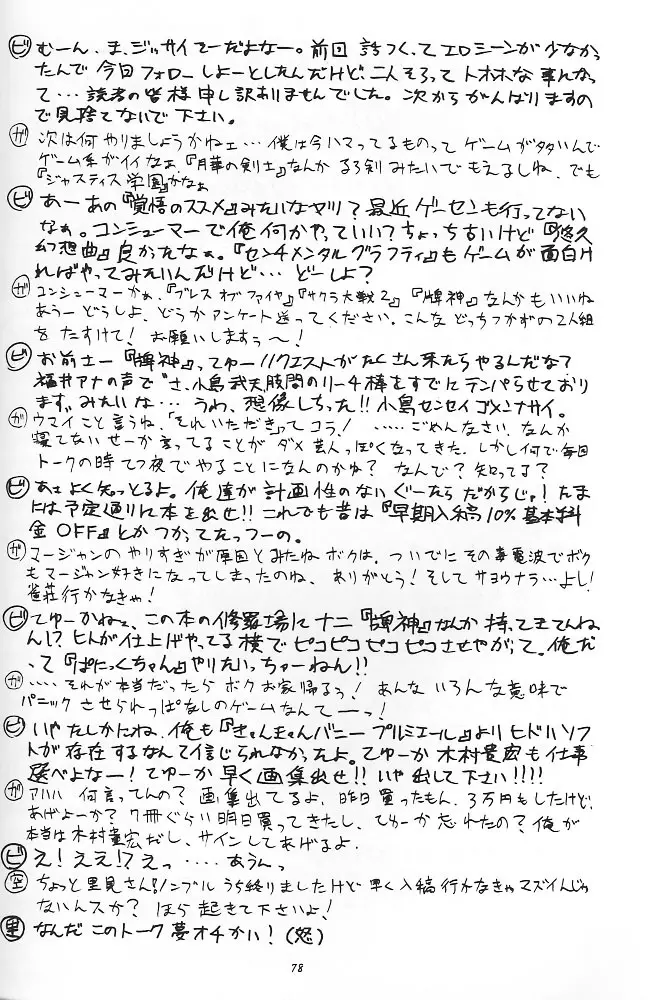 ビ むーん、ま、ジッサイそーだよなー。前回 詰つくってエロシーンが少なかっ
たんで 今日フォローしよーとしたんだけど、二人そろって トホホな事んなっ
て… 読者の皆様申し訳ありませんでした。次からがんばりますの
で見捨てないで下さい。
ガ 次は何やりましょうかねェ… 僕は今ハマってるものって ゲームが多いんで
ゲーム系がイイなぁ、『月華の剣士』なんか るろ剣みたいで もえるしね、でも
『ジャスティス学園』かなぁ
ビ あー あの『覚悟のススメ』みたいなヤツ? 最近 ゲーセンも行ってない
なぁ。コンシューマーで俺何かやっていい? ちょっち古いけど『悠久
幻想曲』良かったなぁ。『センチメンタルグラフティ』もゲームが面白け
ればやってみたいんだけど… どーしよ?
ガ コンシューマーかぁ、『ブレスオブファイヤ』『サクラ大戦2』『牌神』なんかもいいね
あうー どうしよ、どうかアンケート送ってください。こんな どっちつかずの2人組
を たすけて! お願いしますぅ~!
ビ お前さー『牌神』ってゆーハクエストがたくさん来たらやるんだな?
福井アナの声で“さ、小島武夫 股間のリーチ棒をすでにテンパらせており
ます”みたいな… うわ、想像しちった!! 小島センセイゴメンナサイ。
ガ ウマイこと言うね、「それいただきっ」て コラ! ……ごめんなさい、なんか
寝てないせーか言ってることが ダメ芸人っぽくなってきた。しかし何で毎回
トークの時 てつ夜でやることになんのかね? なんで? 知ってる?
ビ あぁ よく知っとるよ。俺達が計画性のない ぐーたら だからじゃ! たま
には予定通りに本を出せ!! これでも昔は『早期入稿10%基本料
金OFF』とか つかってたっつーの。
ガ マージャンの やりすぎが原因とみたねボクは、ついでにその毒電波でボク
もマージャン好きになってしまったのね、ありがとう! そして サヨウナラ…よし!
雀荘行かなきゃ!
ビ てゆーかねぇ、この本の修羅場にナニ『牌神』なんか 持ってきてんね
ん!? ヒトが仕上げやってる横で ピコピコピコピコさせやがって。俺だ
って『ぱにっくちゃん』やりたいっちゅーねん!!
ガ ……それが本当だったら ボクお家帰るっ! あんな いろんな意味で
パニック させられっぱなしのゲームなんてーーっ!
ビ いや たしかにね、俺も『きゃんきゃんバニープルミエール』よりヒドいソフ
トが存在するなんて信じられなかったよ。てゆーか木村貴宏も仕事
選べよなー! てゆーか 早く画集出せ!! いや出して下さい!!!!
ガ アハハ 何言ってんの? 画集出てるよ、昨日買ったもん、3万円もしたけど、
あげよーか? 7冊ぐらい明日買ってきたし、てゆーか忘れたの? 俺が
本当は木村貴宏だし、サインしてあげるよ.
ビ え! ええ!? えっ …… あうんっ
空 ちょっと里見さん! ノンブル うち終りましたけど 早く入稿行かなきゃマズイんじゃ
ないんスか? ほら 起きて下さいよ!
里 なんだ このトーク 夢オチかい! (怒)
78